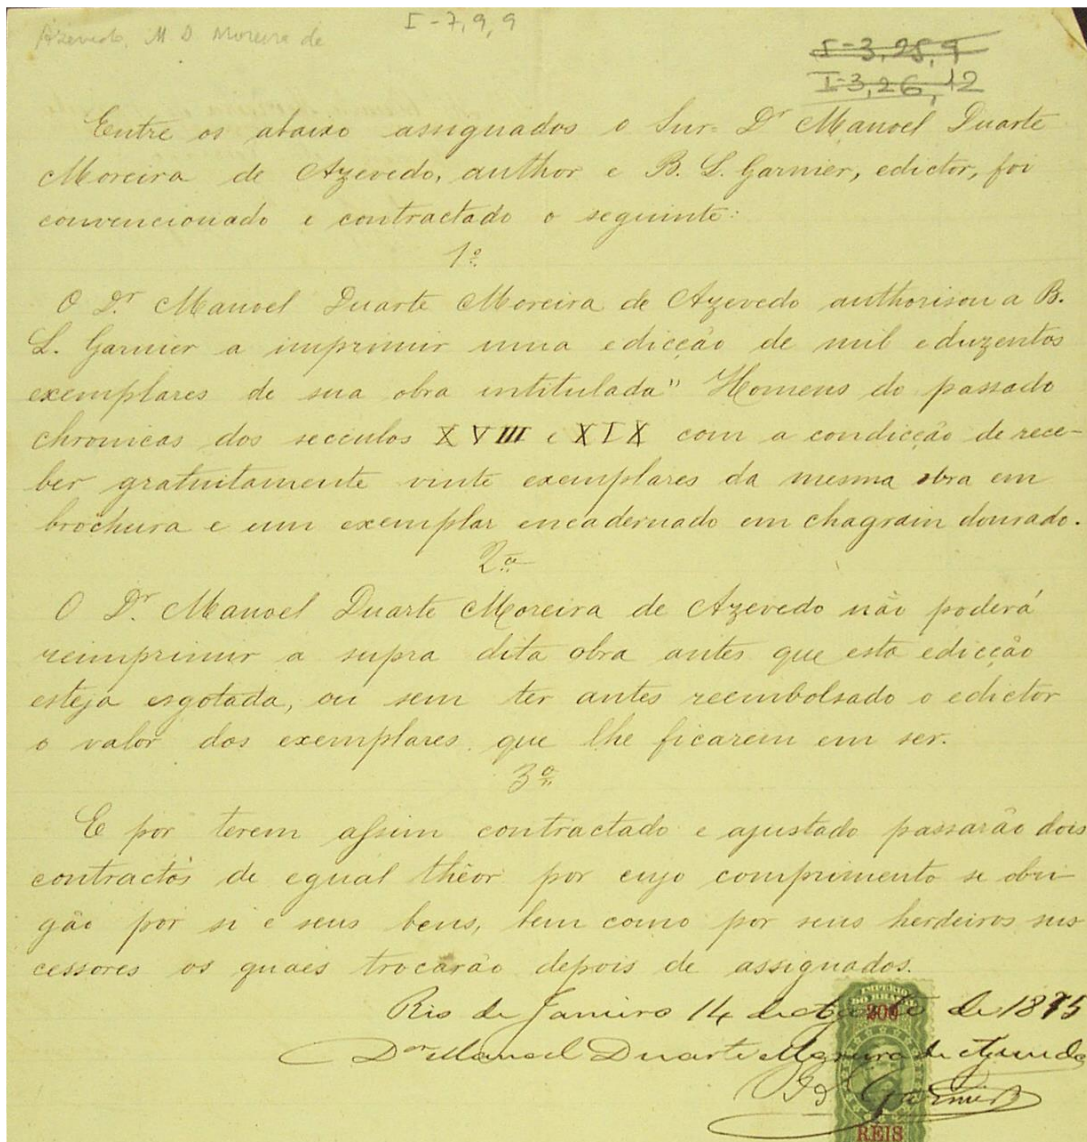 Azevedo, M D. Moreira de
I-7,9,9
I-3,25,9
I-3,26,12
Entre os abaixo assignados o Snr. Dr Manoel Duarte
Moreira de Azevedo, author e B. L. Garnier, edictor, foi
convencionado e contractado o seguinte:
1º
O Dr. Manoel Duarte Moreira de Azevedo authorisou a B.
L. Garnier a imprimir uma edicção de mil e duzentos
exemplares de sua obra intitulada " Homens do passado
chronicas dos seculos XVIII e XIX com a condicção de rece-
ber gratuitamente vinte exemplares da mesma obra em
brochura e um exemplar encadernado em chagrain dourado.
2º
O Dr Manoel Duarte Moreira de Azevedo não poderá
reimprimir a supra dita obra antes que esta edicção
esteja esgotada, ou sem ter antes reembolsado o edictor
o valor dos exemplares que lhe ficarem em ser.
3º
E por terem assim contractado e ajustado passarão dois
contractos de egual theor por cujo comprimento se obri
gão por si e seus bens, bem como por seus herdeiros suc
cessores os quaes trocarão depois de assignados.
Rio de Janeiro 14 de de 1875
IMPERIO
DO BRAZIL
200
Dor Manoel Duarte Moreira de Azevedo
B L Garnier
REIS